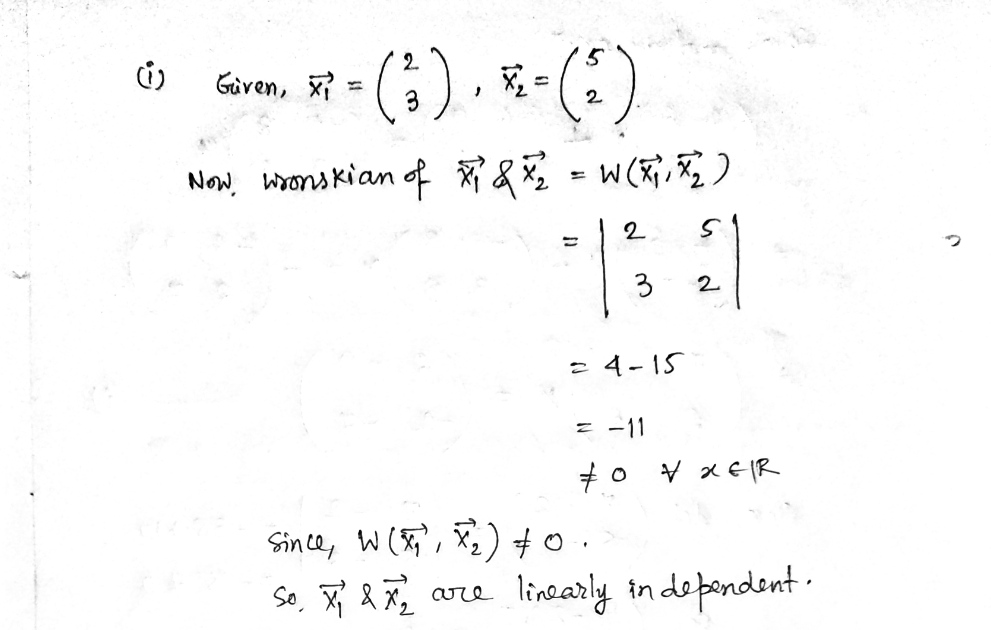 (i) Given, x₁⃗ = (2 3), x₂⃗ = (5 2).
Now, wronskian of x₁⃗ & x₂⃗ = W(x₁⃗, x₂⃗)
= |2 5
3 2|
= 4 - 15
= -11
≠ 0 ∀ x ∈ ℝ
Since, W(x₁⃗, x₂⃗) ≠ 0.
So, x₁⃗ & x₂⃗ are linearly independent.